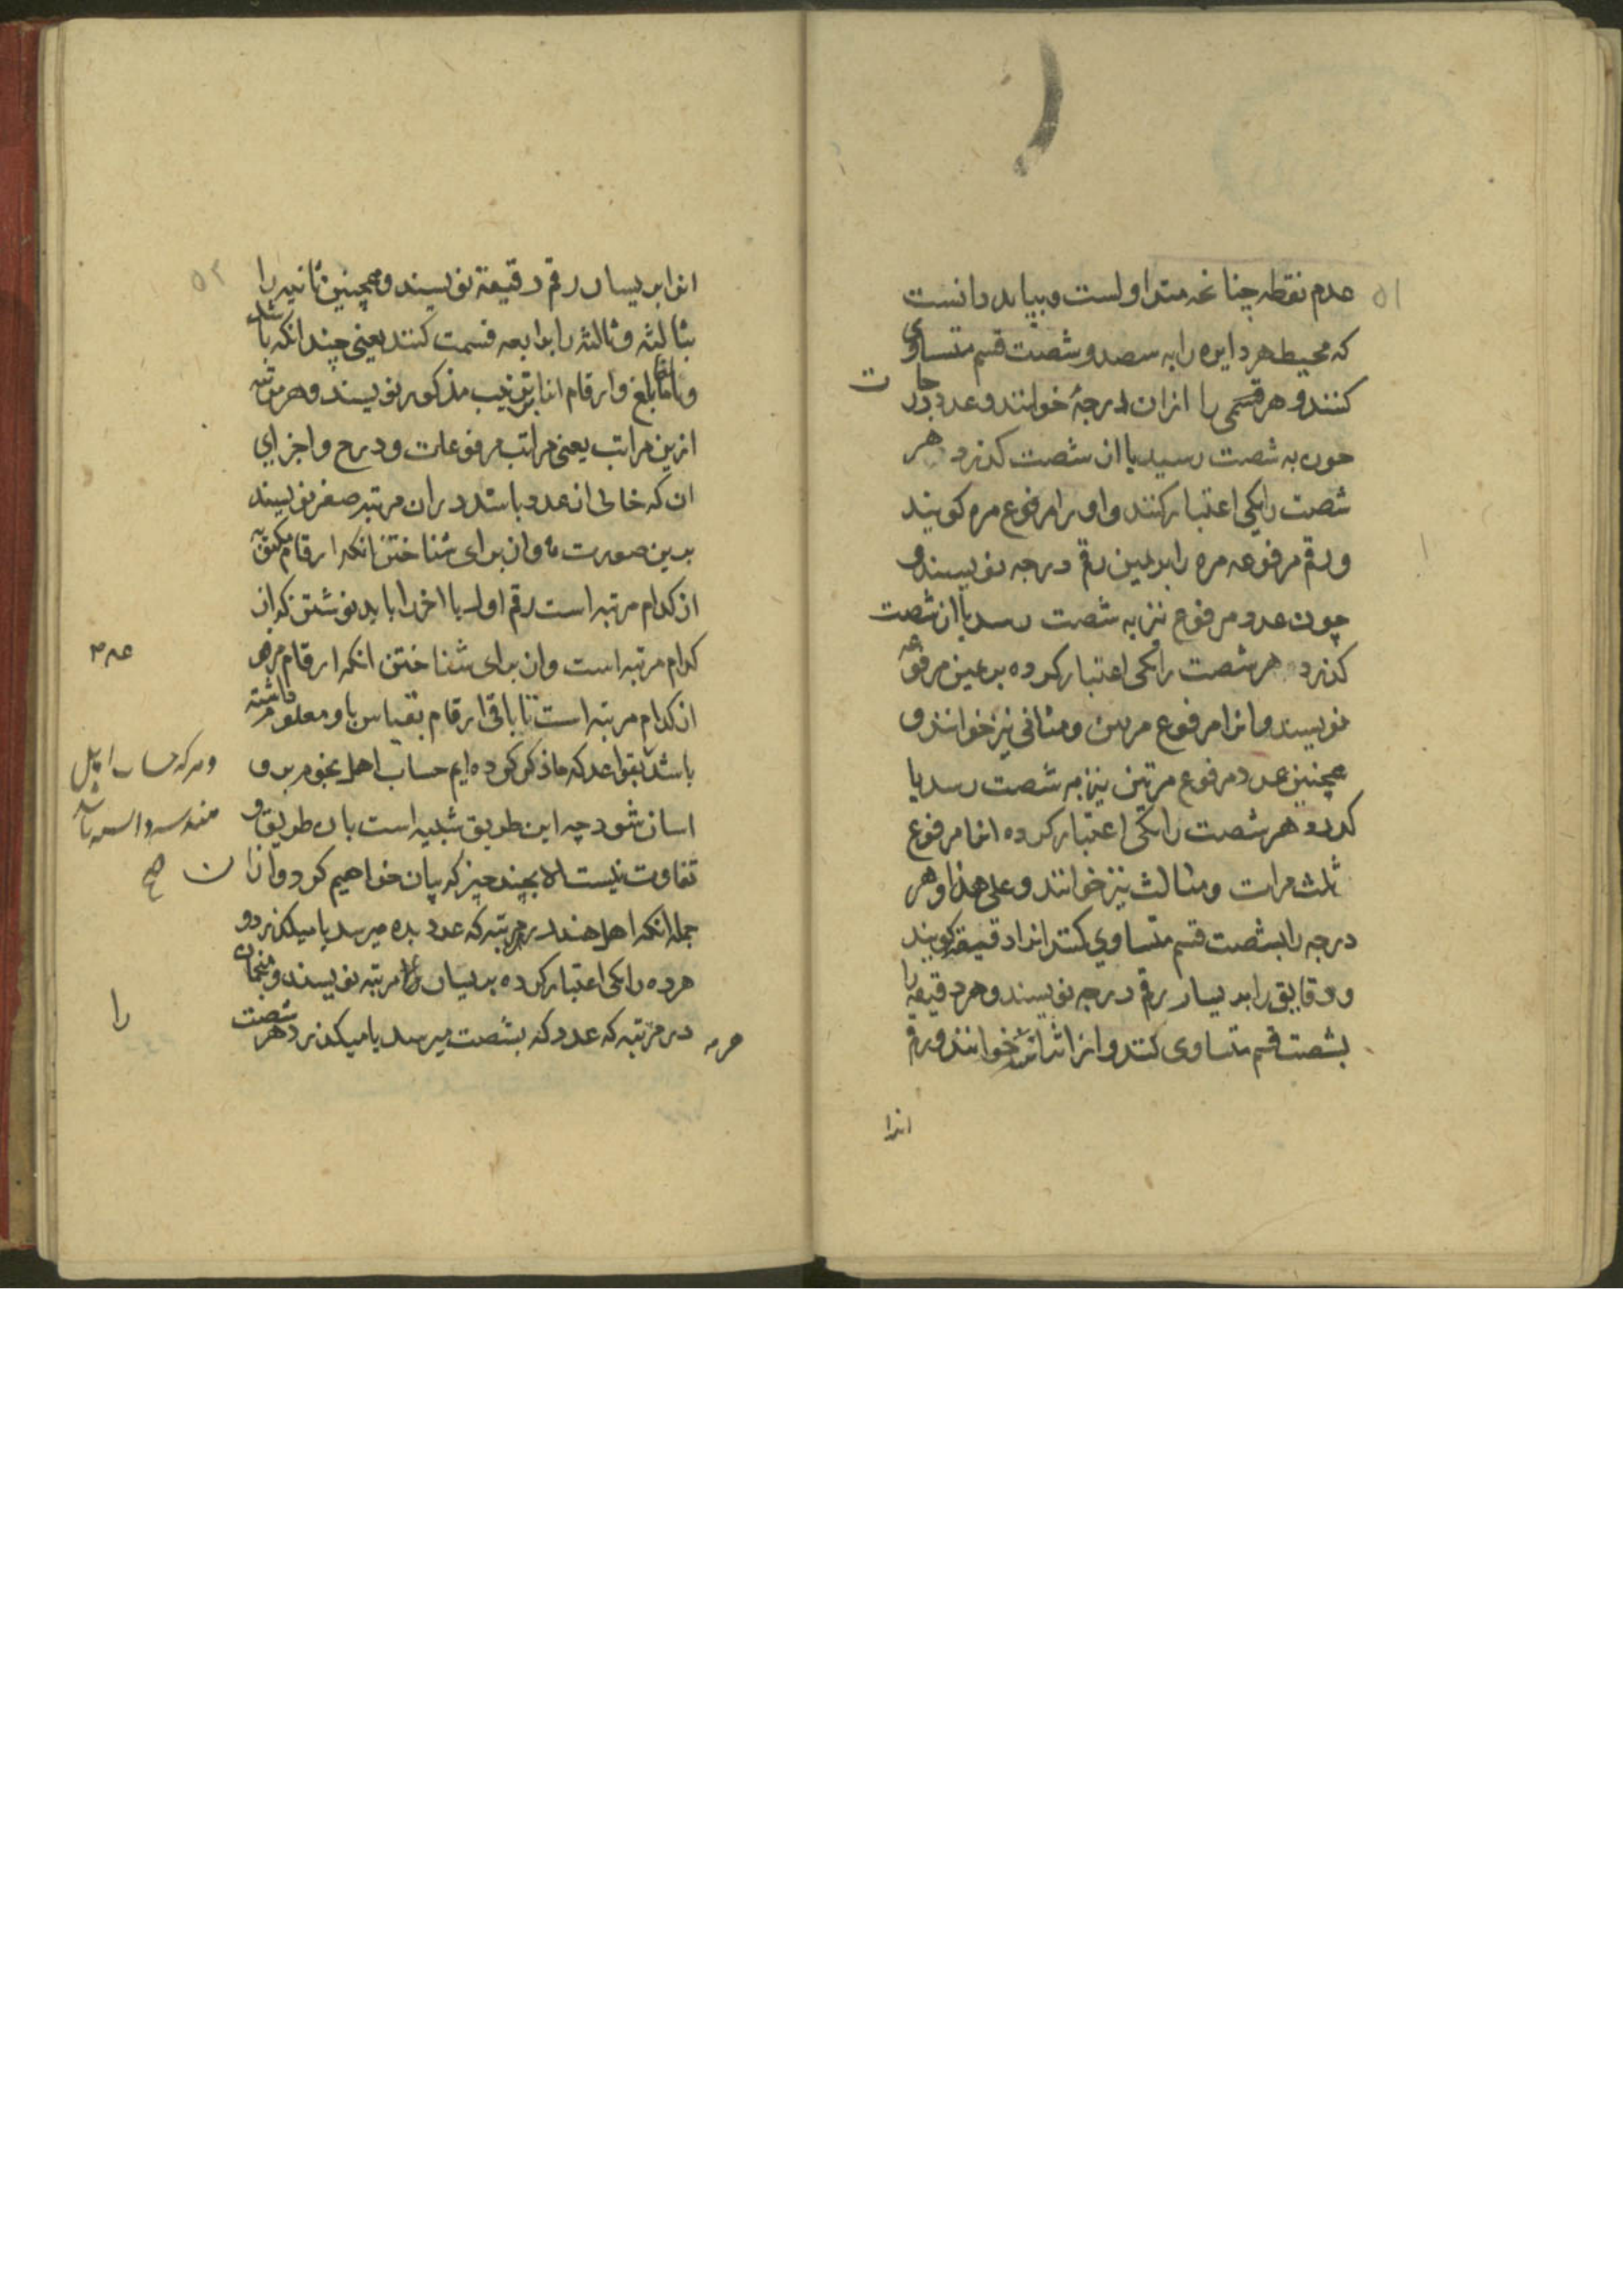 ۵۱
عدم نقطه چنانچه متداولست و بباید دانست
که محیط هر دایره را به سصد و شصت قسم متساوی
کنند و هر قسمی را ازان درجهٔ خوانند و عدد درجات
چون به شصت رسید یا از شصت کذرد هر
شصت را یکی اعتبار کنند و او را مرفوع مره کویند
و رقم مرفوعه مره را بر یمین رقم درجه نویسند و
چون عدد مرفوع نیز به شصت رسد یا از شصت
کذرد هر شصت را یکی اعتبار کرده بر یمین مرفوعه
نویسند و انرا مرفوع مرتین و مثانی نیز خوانند و
همچنین عدد مرفوع مرتین نیز به شصت رسد یا
کذرد هر شصت را یکی اعتبار کرده انرا مرفوع
ثلث مرات و مثالث نیز خوانند و علی هذا و هر
درجه را بشصت قسم متساوی کنند انرا دقیقه کویند
و دقایق را بر یسار رقم درجه نویسند و هر دقیقه را
بشصت قسم متساوی کنند و انرا ثانیه خوانند و رقم
انرا
۵۲
انرا بر یسار رقم دقیقه نویسند و همچنین ثانیه را
بثالثه و ثالثه را برابعه قسمت کنند یعنی چندانکه باشد
و بالغا ما بلغ و ارقام انرا بترتیب مذکور نویسند و هر مرتبه
ازین مراتب یعنی مراتب مرفوعات و درج و اجزای
ان که خالی از عدد باشد دران مرتبه صفر نویسند
بدین صورت و ان برای شناختن انکه ارقام مکتوبه
از کدام مرتبه است رقم اول یا اخر را باید نوشتن که از
کدام مرتبه است و ان برای شناختن انکه ارقام
از کدام مرتبه است تا باقی ارقام بقیاس با و معلوم
باشد بقواعد که ما ذکر کرده ایم حساب اهل نجوم برو
اسان شود چه این طریق شبیه است بان طریق و
تفاوت نیست الا بچند چیز که بیان خواهیم کرد و ازان
جمله انکه اهل هند در هر مرتبه که عدد بده میرسد یا میکذرد و
هر ده را یکی اعتبار کرده بر یسار مرتبه نویسند و منجمان
در مرتبه که عدد که بشصت میرسد یا میکذرد هر شصت
را
صح